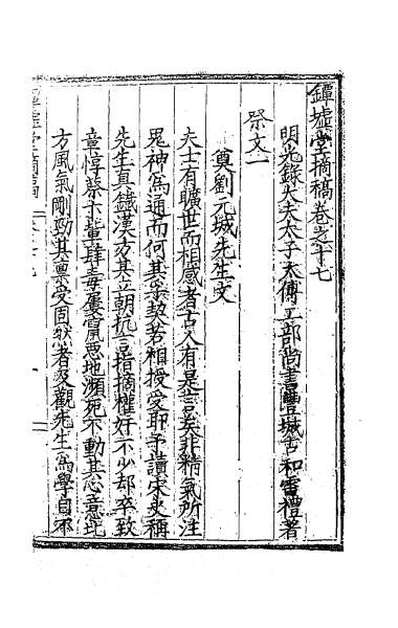 鐔墟堂摘稿卷之十七
明光錄大夫太子太傅工部尚書豐城古和雷禮著
祭文一
奠劉元城先生文
夫士有曠世而相感者古人有是言矣非精氣所注
鬼神爲通而何其柔契若相授受耶予讀宋史稱
先生真鐵漢方其立朝抗言指摘權奸不少却卒致
章惇蔡卞輩肆毒屢竄惡地瀕死不動其心意北
方風氣剛勁其稟受固然者及觀先生爲學自不